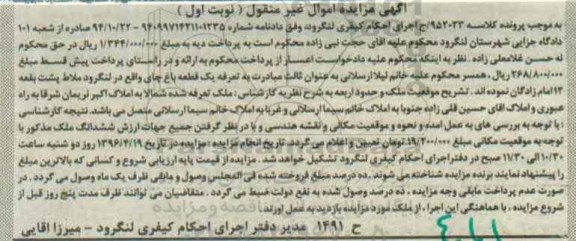 آگهی مزایده اموال غیر منقول ( نوبت اول )
به موجب پرونده کلاسه ۹۵۲۰۳۳/ج اجرای احکام کیفری لنگرود، وفق دادنامه شماره ۹۴۰۹۹۷۱۴۳۱۱۰۱۲۳۵ - ۹۴/۱۰/۲۲ صادره از شعبه ۱۰۱
دادگاه جزایی شهرستان لنگرود محکوم علیه آقای حجت نبی زاده محکوم است به پرداخت دیه به مبلغ ۱/۳۴۴/۰۰۰/۰۰۰ ریال در حق محکوم
له حسن غلامعلی زاده . نظر به اینکه محکوم علیه دادخواست اعسار از پرداخت محکوم به ارائه و در راستای پرداخت پیش قسط مبلغ
۲۶۸/۸۰۰/۰۰۰ ریال ، همسر محکوم علیه خانم لیلا ارسلانی به عنوان ثالث مبادرت به تعرفه یک قطعه باغ چای واقع در لنگرود ملاط پشت بقعه
۱۴ امام زادگان نموده اند . تشریح موقعیت ملک و حدود اربعه به شرح نظریه کارشناس : ملک تعرفه شده شمالا به املاک اکبر نریمان شرقا به راه
عبوری و املاک آقای حسین قلی زاده جنوبا به املاک خانم سیما ارسلانی و غربا به املاک خانم سیما ارسلانی متصل می باشد. نتیجه کارشناسی
: با توجه به بررسی های به عمل آمده و نحوه و موقعیت مکانی و نقشه هندسی و با در نظر گرفتن جمیع جهات ارزش ششدانگ ملک مذکور با
توجه به موقعیت مکانی مبلغ ۱۹/۲۰۰/۰۰۰ تومان تعیین و اعلام می گردد. تاریخ انجام مزایده : مزایده در تاریخ ۱۳۹۶/۴/۱۹ روز دو شنبه ساعت
۱۰/۳۰ الی ۱۱/۳۰ صبح در دفتر اجرای احکام کیفری لنگرود تشکیل خواهد شد . مزایده از قیمت پایه ارزیابی شروع و کسانی که بالاترین مبلغ
را پیشنهاد نمایند برنده مزایده شناخته می شوند . ده درصد مبلغ فروخته شده فی المجلس وصول و مابقی ظرف یک ماه وصول می گردد . در
صورت عدم پرداخت مابقی وجه مزایده ، ده درصد وصول شده به نفع دولت ضبط می گردد . متقاضیان می توانند ظرف مدت پنج روز قبل از
شروع مزایده ، با هماهنگی این اجرا ، از ملک مورد مزایده بازدید به عمل آورند .
ح ۱۴۹۱ مدیر دفتر اجرای احکام کیفری لنگرود - میرزا آقایی